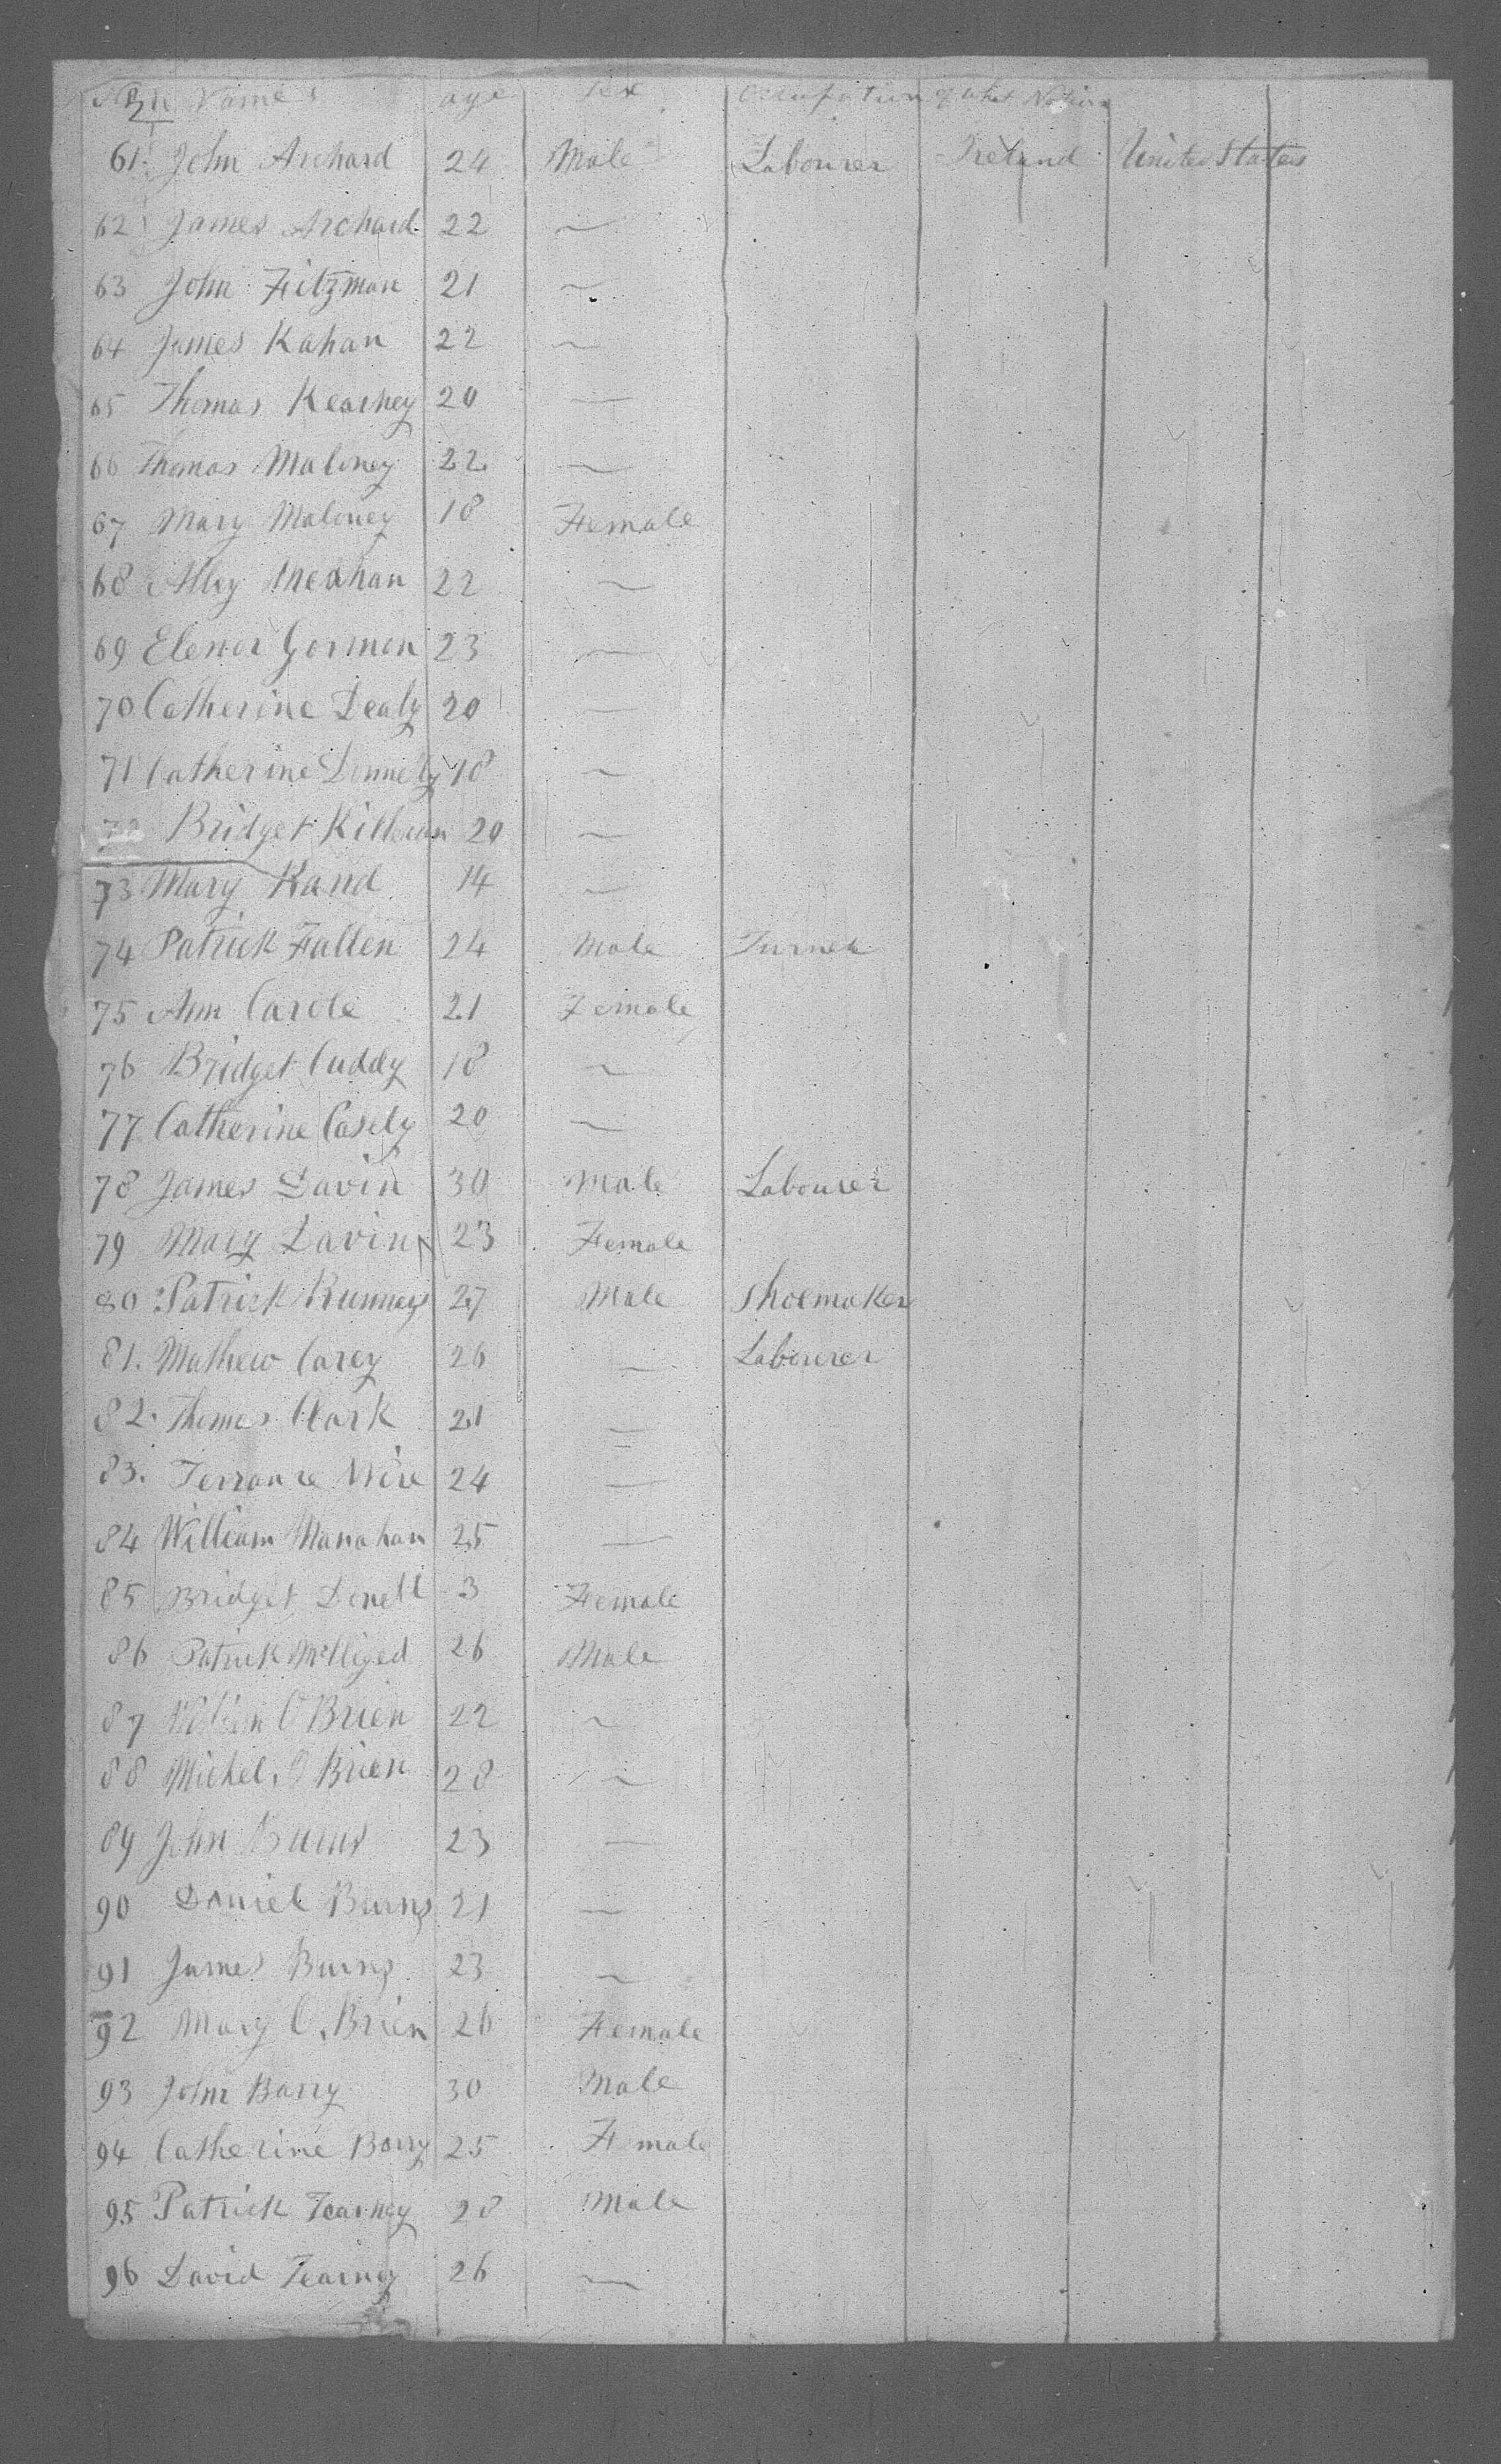 Names age Sex Occupation of what Nation
61. John Archard 24 Male Labourer Ireland United States
62 James Archard 22 —
63 John Fitzman 21 —
64 James Kahan 22 —
65 Thomas Kearney 20 —
66 Thomas Maloney 22 —
67 Mary Maloney 18 Female
68 Abby Meahan 22 —
69 Elenor Gorman 23 —
70 Catherine Dealy 20 —
71 Catherine Donnely 18 —
72 Bridget Killeran 20 —
73 Mary Kand 14 —
74 Patrick Fallen 24 Male Turner
75 Ann Carole 21 Female
76 Bridget Cuddy 18 —
77 Catherine Casely 20 —
78 James Davin 30 Male Labourer
79 Mary Davin 23 Female
80 Patrick Runney 27 Male Shoemaker
81. Mathew Carey 26 — Labourer
82. Thomas Clark 21 —
83. Terrance Wire 24 —
84 William Manahan 25 —
85 Bridget 3 Female
86 Patrick 26 Male
87 William O Brien 22 —
88 Michel O Brien 28 —
89 John Burns 23 —
90 Daniel Burns 21 —
91 James Burns 23 —
92 Mary O. Brien 26 Female
93 John Barry 30 Male
94 Catherine Barry 25 Female
95 Patrick Tearney 28 Male
96 David Tearney 26 —